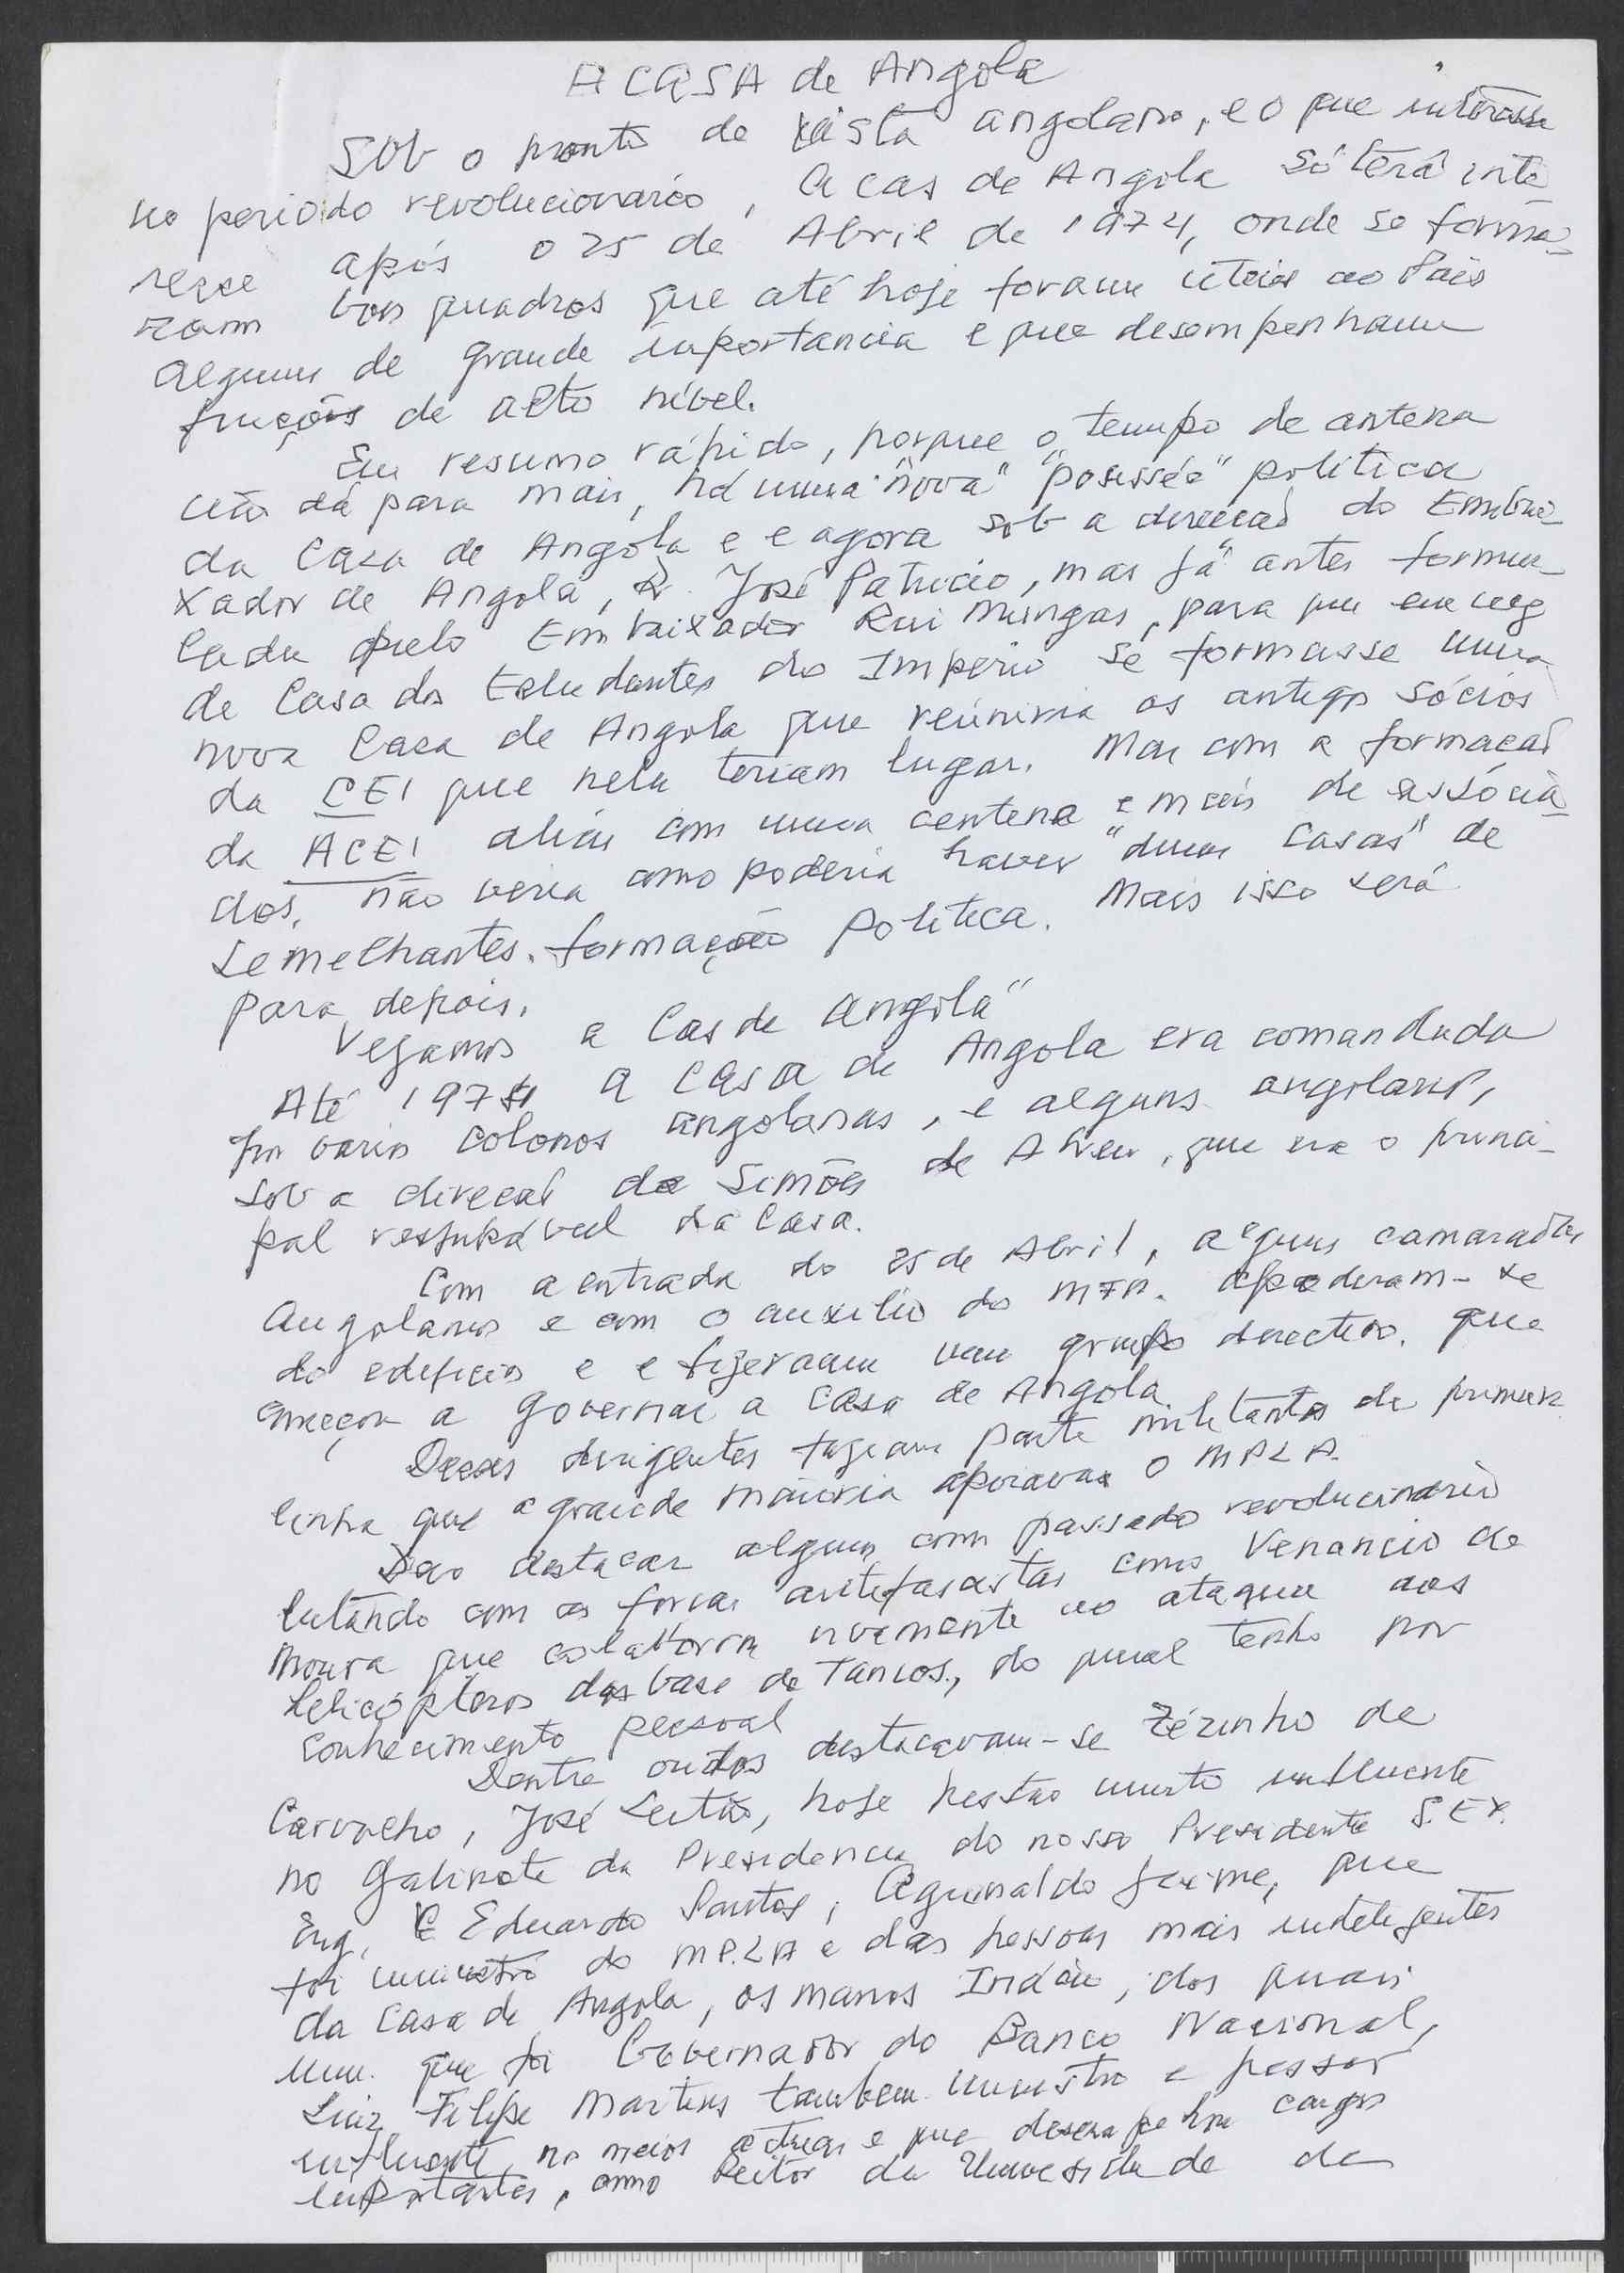 A CASA de Angola
Sob o ponto de vista angolano, e o que interesse
no periodo revolucionario, a cas de Angola só terá inte
resse após o 25 de Abril de 1974, onde se forma-
ram bons quadros que até hoje foram uteis ao Pais
alguns de grande importancia e que desempenham
funções de alto nível.
Em resumo rápido, porque o "tempo de antena
não dá para mais, há uma "nova" "posissão" politica
da Casa de Angola e e agora sob a direcção do Embai-
xador de Angola, Dr. José Patricio, mas já antes formu-
lada pelo Embaixador Rui Mingas, para que em vez
de Casa dos Estudantes do Imperio se formasse uma
nova Casa de Angola que reúniria os antigos sócios
da CEI que nela teriam lugar. Mas com a formação
da ACEI aliás com uma centena e mais de associa-
dos, não veria como poderia haver "duas Casas" de
semelhantes formação politica. Mais isso será
para depois.
Vejamos a Cas de Angola"
Até 1974 a Casa de Angola era comandada
por varios colonos angolanas, e alguns angolanos,
sob a direcção de Simões de Abreu, que era o princi-
pal responsável da Casa.
Com a entrada do 25 de Abril, alguns camaradas
Angolanos e com o auxilio do MFA. apoderam-se
do edificio e e fizeram um grupo directivo. que
começou a governar a Casa de Angola
Desses dirigentes faziam parte militantes de primeira
linha que a grande maioria apoiava o MPLA.
Devo destacar alguns com passado revolucionario
lutando com as forças antifascistas como Venancio de
Moura que colaborou vivamente no ataque aos
helicópteros da base de Tancos., do qual tenho por
conhecimento pessoal
Dentre outros destacavam-se Zézinho de
Carvalho, José Leitão, hoje pessoa muito influente
no Gabinete da Presidencia do nosso Presidente S. Ex.
Eng. E Eduardo Santos, Aguinaldo Jaime, que
foi ministro do M.P.L.A e das pessoas mais inteligentes
da Casa de Angola, os manos Inácio, dos quais
um que foi Governador do Banco Nacional,
Luiz Filipe Martins tambem ministro e pessoa
influente no meios actuais e que desempenha cargos
importantes, como Reitor da Universidade de